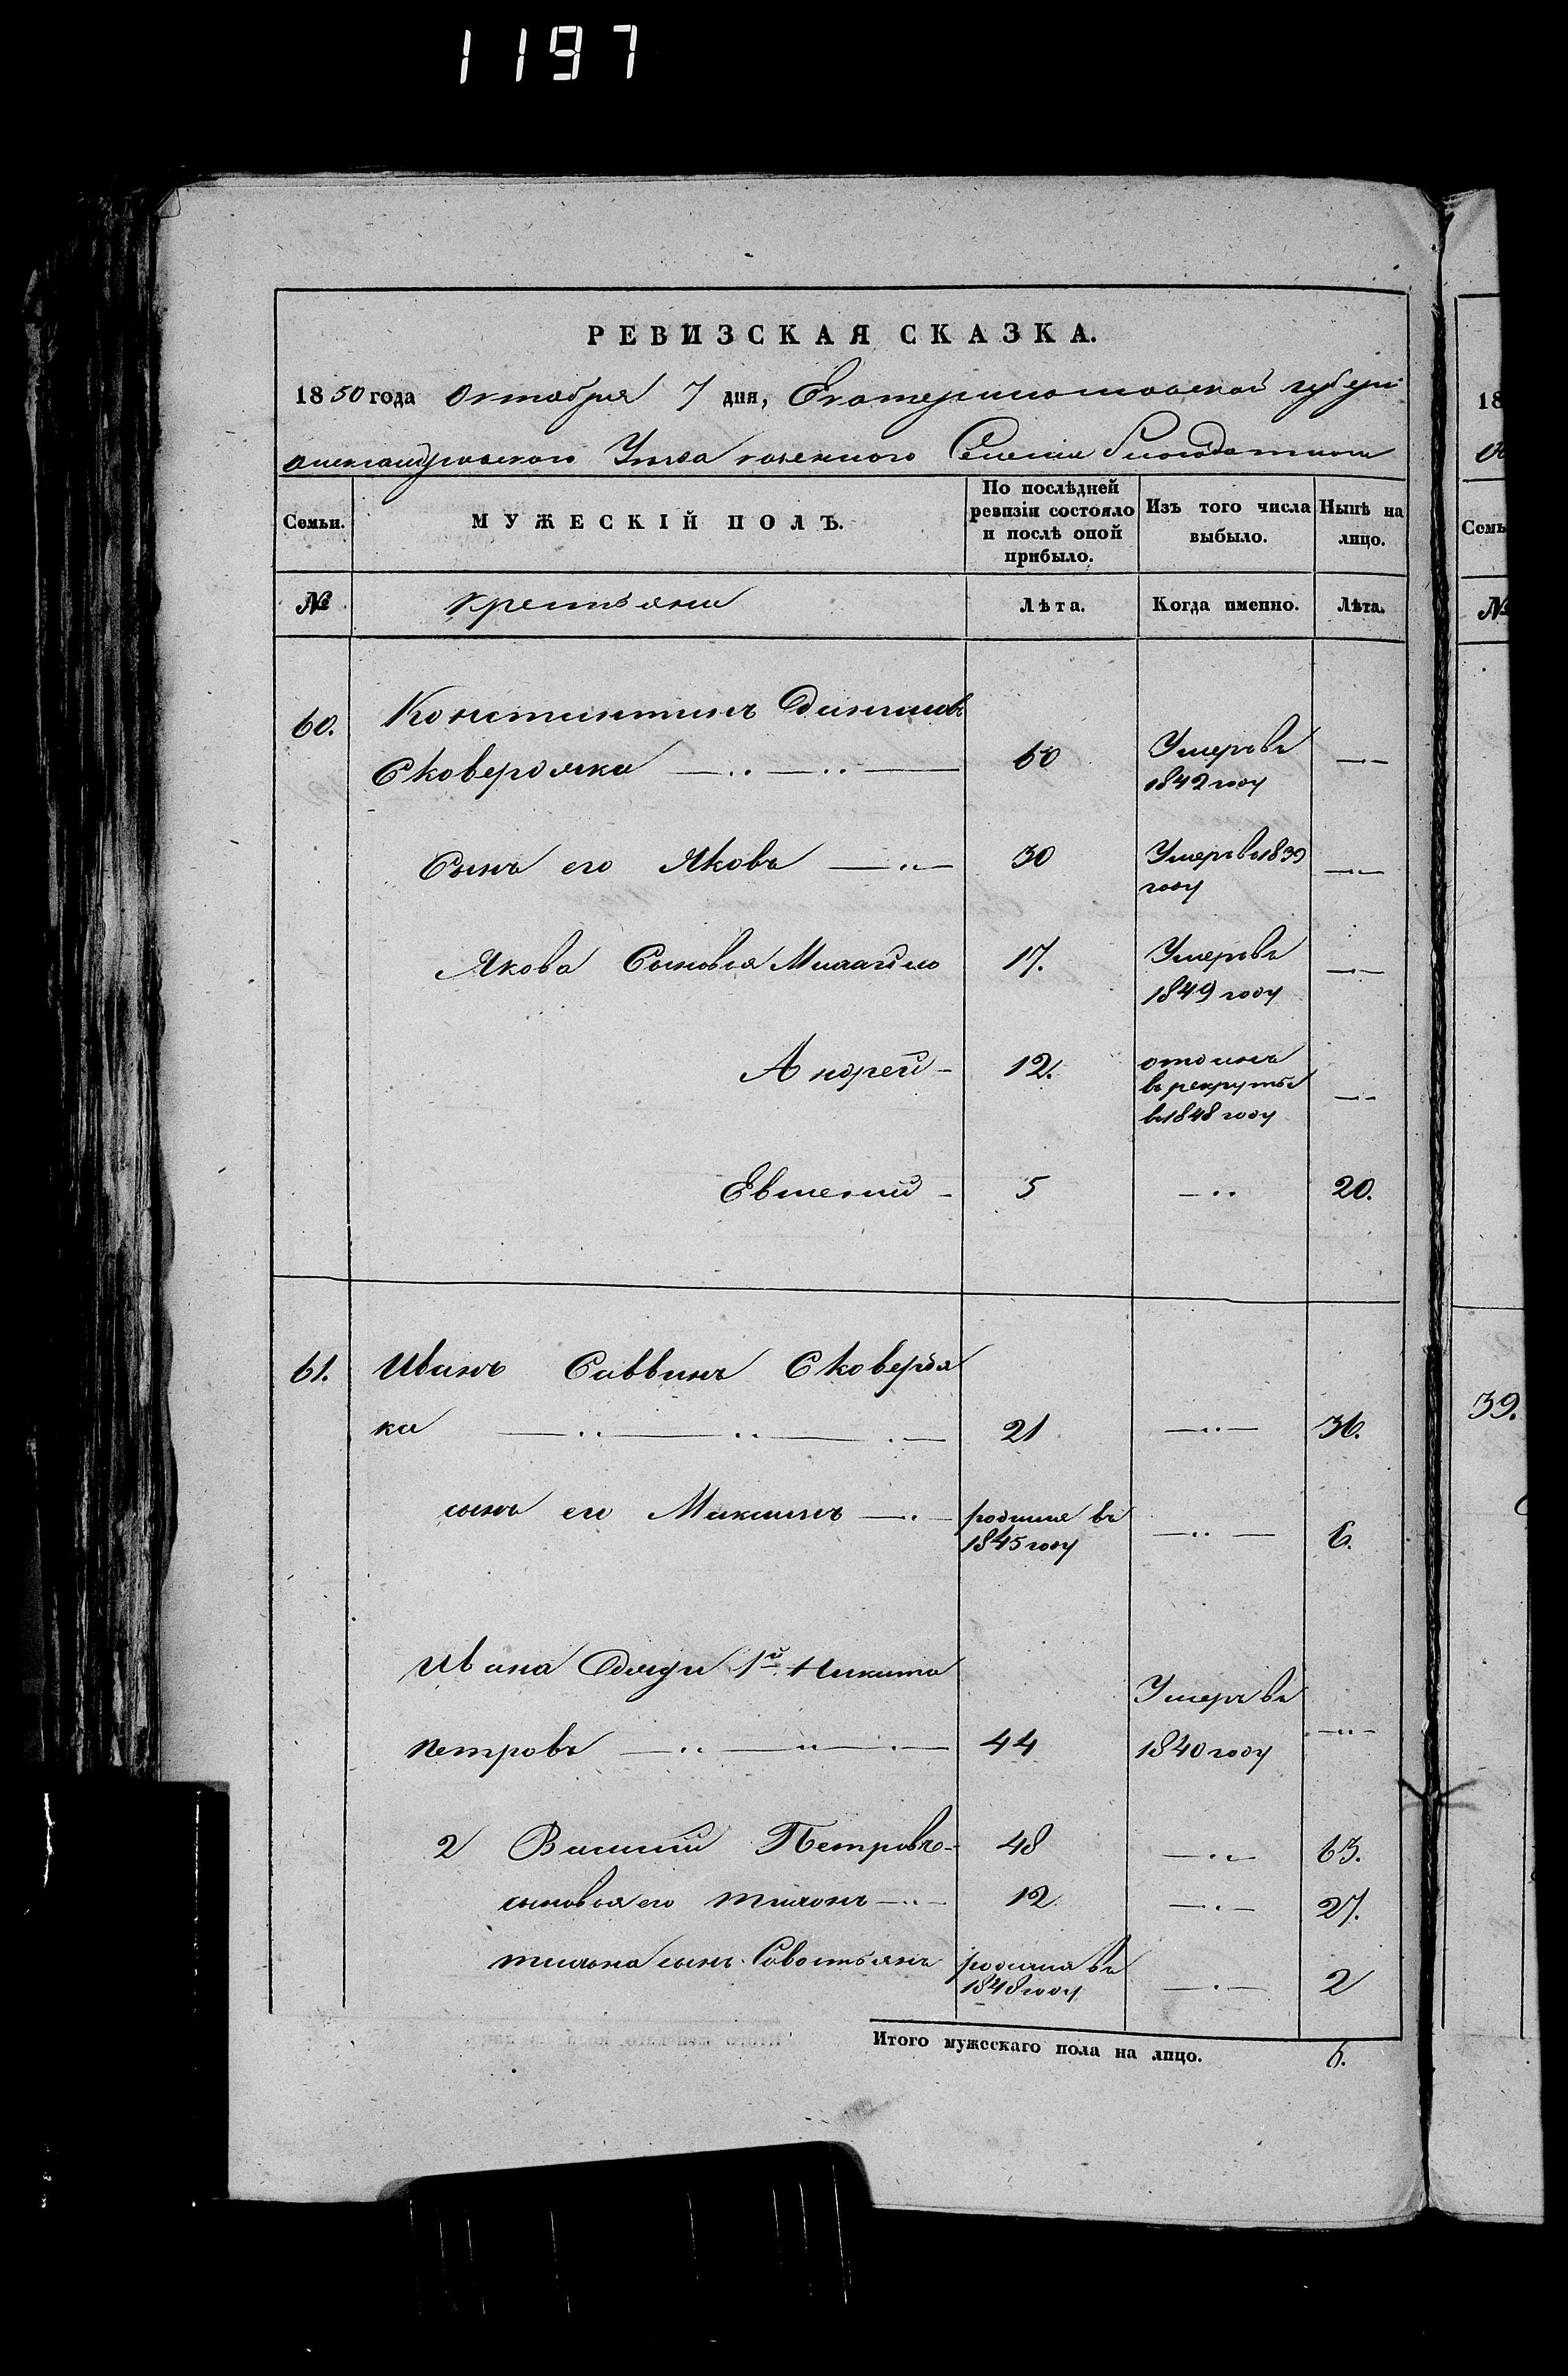 1197
РЕВИЗСКАЯ СКАЗКА.
1850 года Октября 7 дня, Екатеринославской губерніи
Александровского Уезда казенного Селенія Благодатного
Семьи. МУЖЕСКІЙ ПОЛЪ. По послѣдней ревизіи состояло и послѣ оной прибыло. Изъ того числа выбыло. Нынѣ на лицо.
№ крестьяни Лѣта. Когда именно. Лѣта.
60. Константинъ Даниловъ
Сковердяка 60 Умеръ въ 1842 году
Сынъ его Яковъ 30 Умеръ въ 1839 году
Якова Сыновья Михайло 17. Умеръ въ 1849 году
Андрей 12. отданъ въ рекруты въ 1848 году
Евгений 5 20.
61. Иванъ Саввинъ Сковердя
ка 21 36.
сынъ его Максимъ родился въ 1845 году 6.
Ивана Дяди 1й Никита
Петровъ 44 Умеръ въ 1840 году
2 Василий Петровъ 48 63.
сыновья его Тихонъ 12 27.
Тихона сынъ Савостьянъ родился въ 1848 году 2
Итого мужескаго пола на лицо. 6.
18
Семь
№
39.